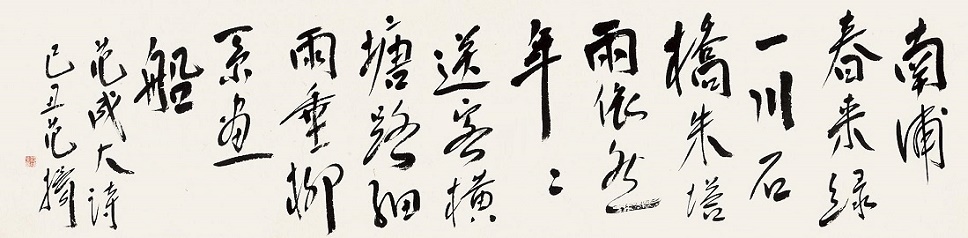 南浦
春来緑
一川石
橋朱塔
兩依然
年〻
送客横
塘路細
雨垂柳
系画
船
范成大詩
己丑范